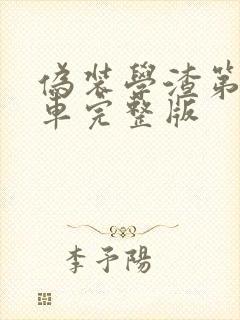 偽裝學渣第
車完整版
李予陽